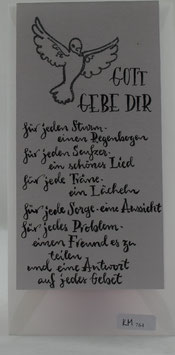 GOTT
GEBE DIR
für jeden Sturm-
einen Regenbogen
für jeden Seufzer-
ein schönes Lied
für jede Träne-
ein Lächeln
für jede Sorge-eine Aussicht
für jedes Problem-
einen Freund es zu
teilen
und eine Antwort
auf jedes Gebet
KM